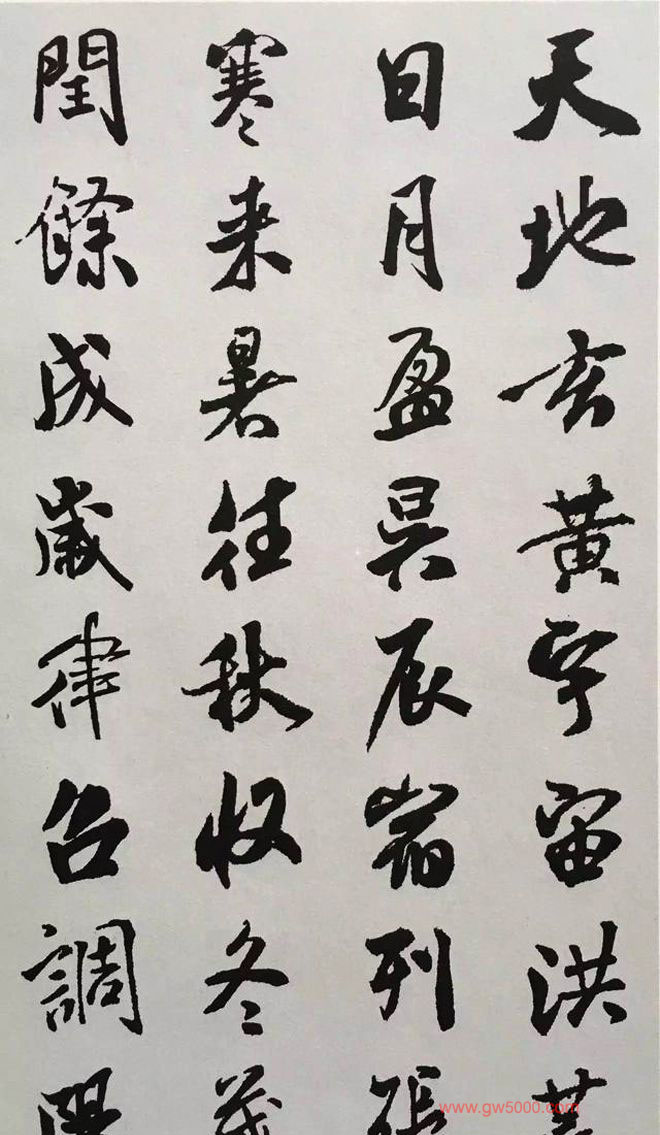 天地玄黄宇宙洪荒
日月盈昃辰宿列張
寒来暑往秋收冬藏
閏餘成歲律召調陽
www.gw5000.com